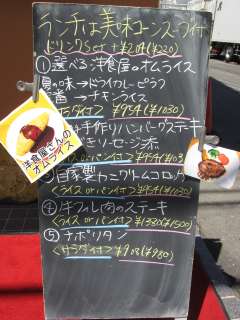 ランチは美味コーンスープ付
ドリンクSet +¥209(¥220)
①選べる洋食屋のオムライス
の味→ドライカレーピラフ
チキンライス
サラダ付 ¥954(¥1030)
手作りハンバーグステーキ
きソーセージ添
or パン付
③自家製カニクリームコロッケ
〈ライス or パン付〉 ¥954(¥1030)
④牛フィレ肉のステーキ
〈ライス or パン付〉 ¥1380(¥1500)
⑤ナポリタン
〈サラダ付〉 ¥908(¥980)
洋食屋さんの
オムライス